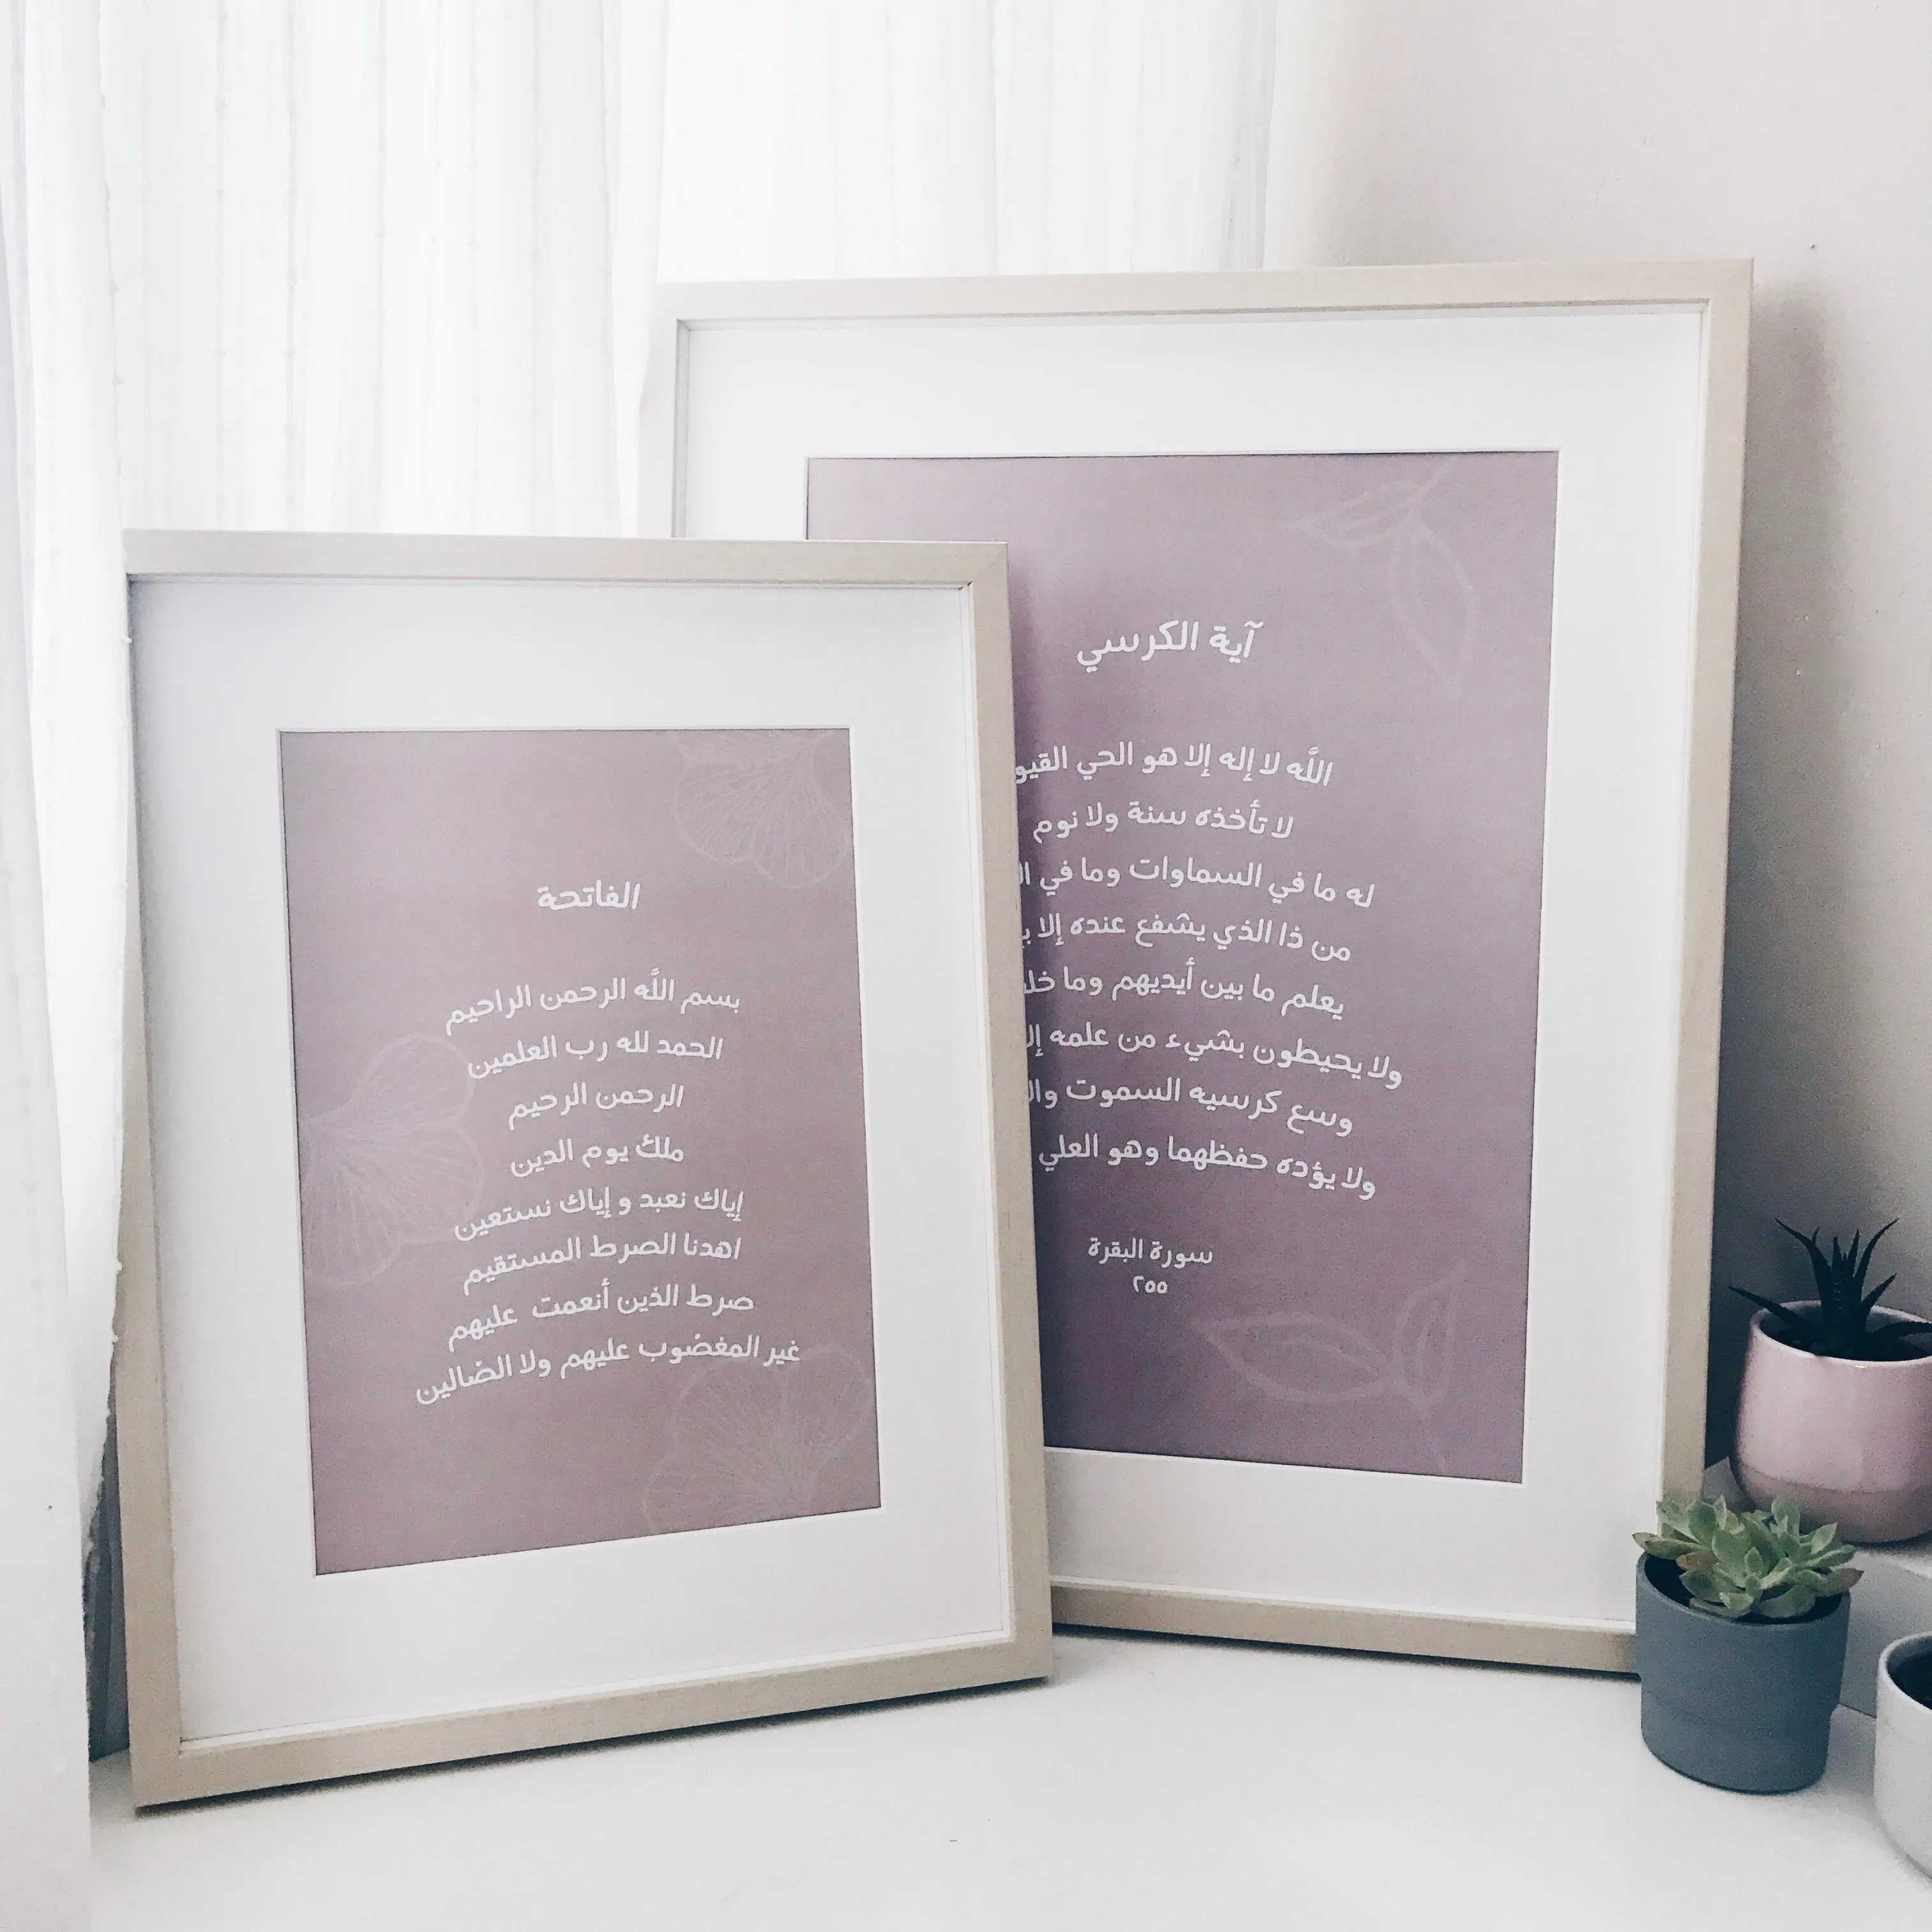 الفاتحة
بسم اللَّه الرحمن الراحيم
الحمد لله رب العلمين
الرحمن الرحيم
ملك يوم الدين
إياك نعبد و إياك نستعين
اهدنا الصرط المستقيم
صرط الذين أنعمت عليهم
غير المغضوب عليهم ولا الضالين
آية الكرسي
اللَّه لا إله إلا هو الحي
لا تأخذه سنة ولا نوم
له ما في السماوات وما في
من ذا الذي يشفع عنده إلا
يعلم ما بين أيديهم وما
ولا يحيطون بشيء من علمه
وسع كرسيه السموت
ولا يؤده حفظهما وهو العلي
سورة البقرة
٢٥٥